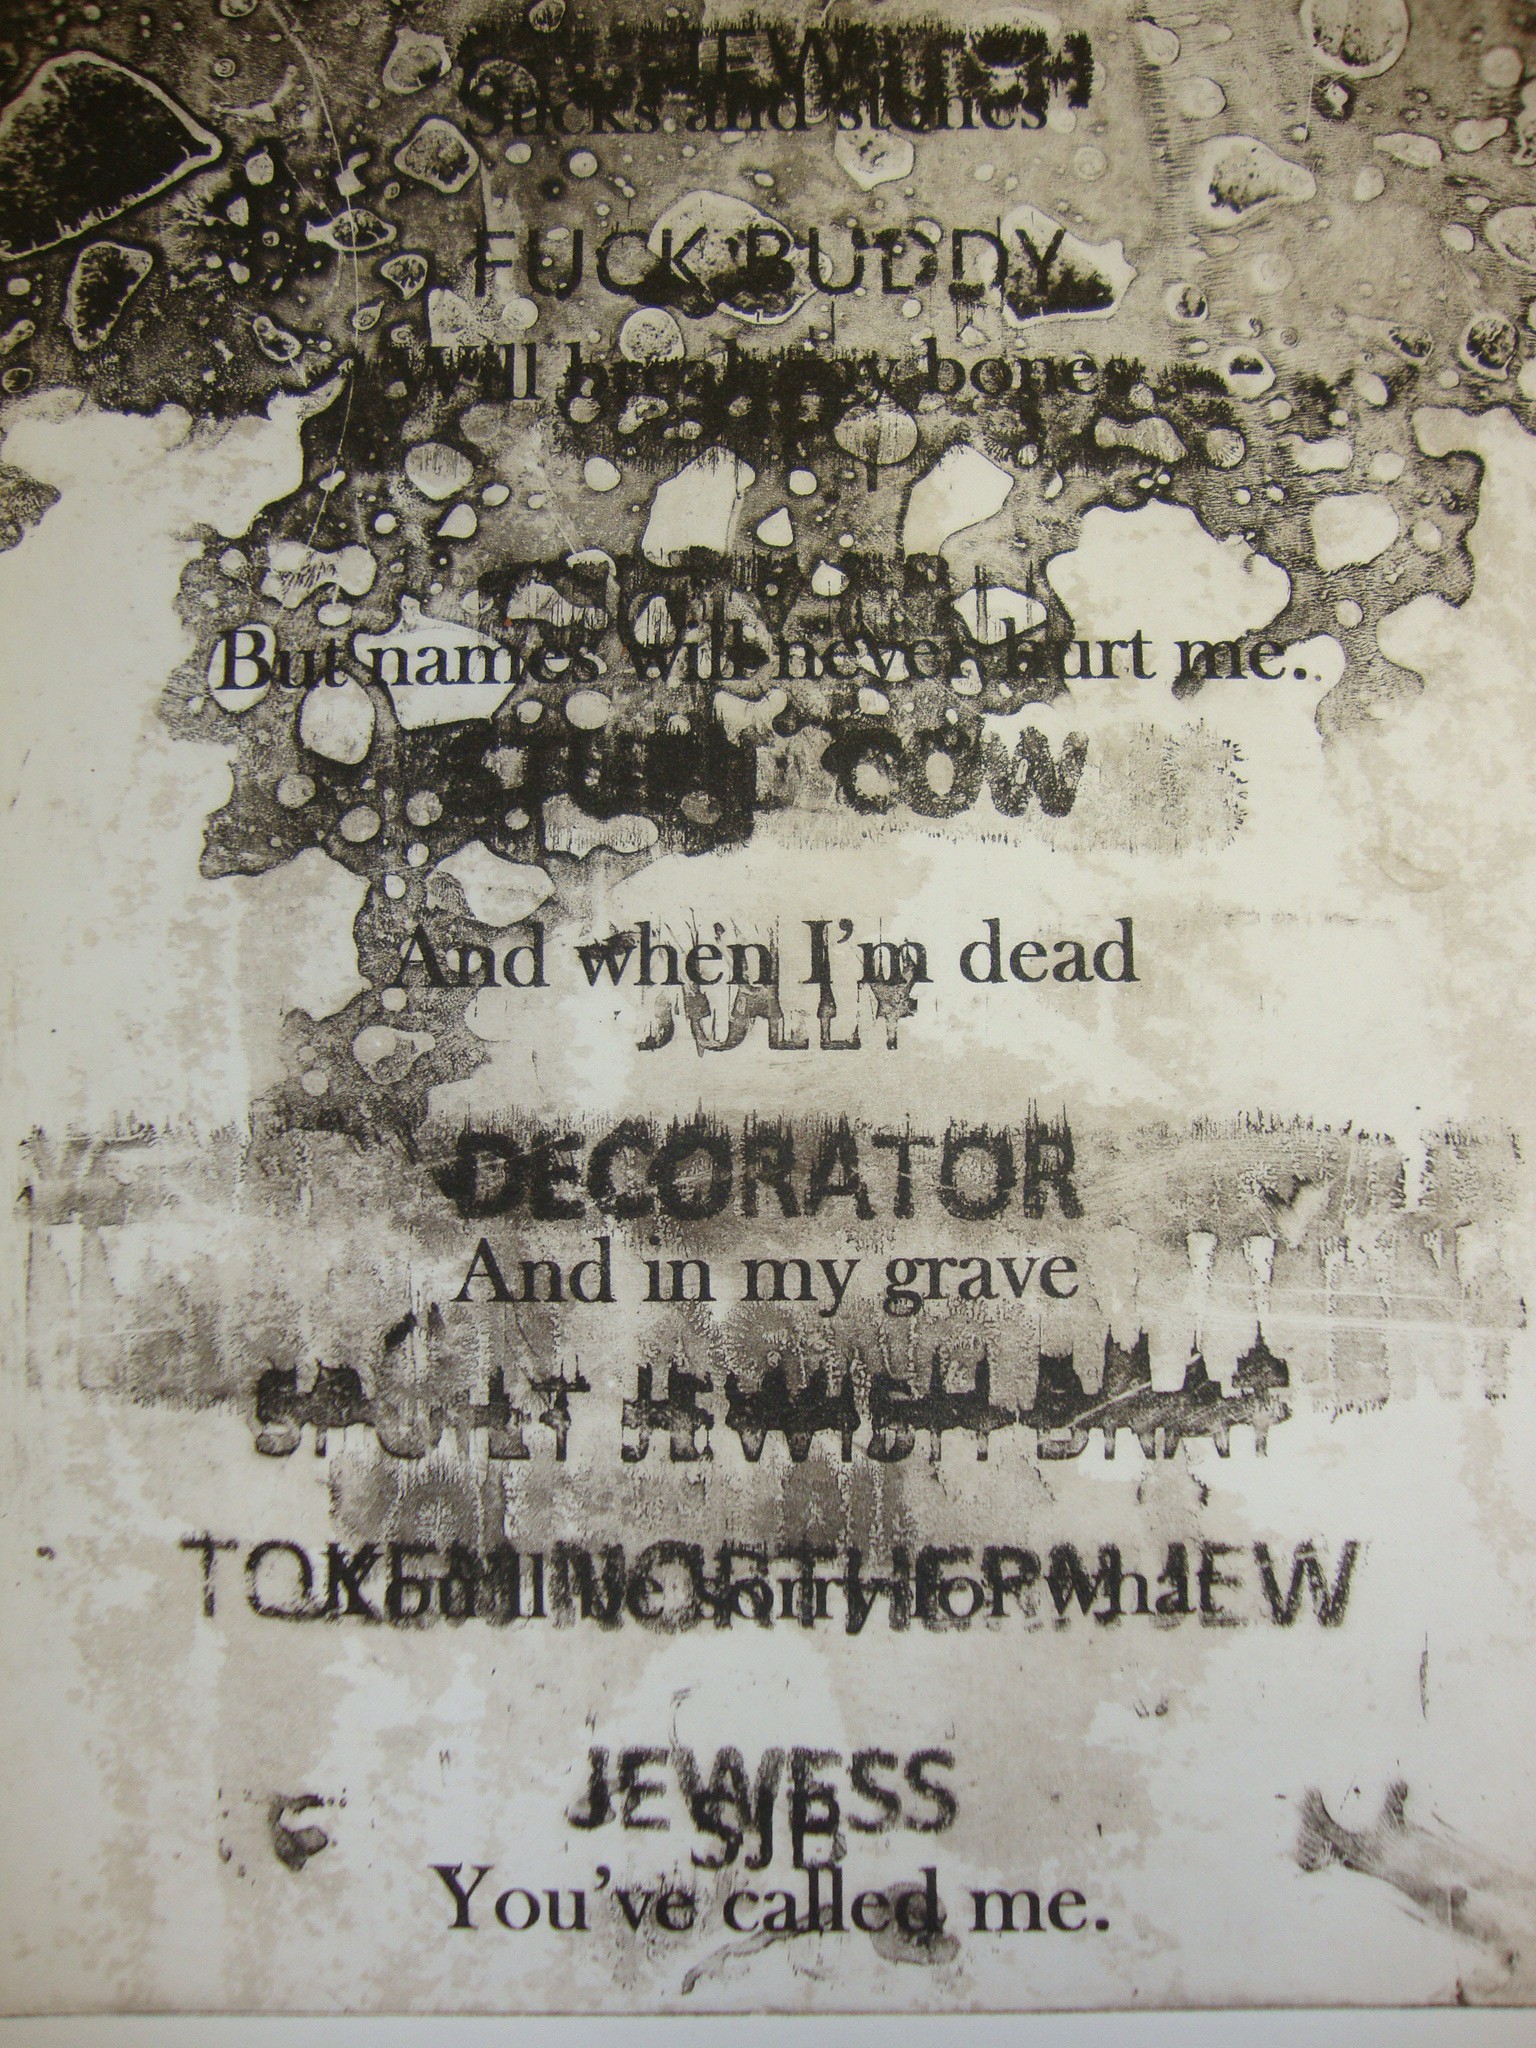 JEWITCH
Sticks and stones
FUCK BUDDY
Will break my bones
But names will never hurt me.
COW
And when I'm dead
JOLLY
DECORATOR
And in my grave
SPOILT JEWISH BRAT
TOKEN NORTHERN JEW
You'll be sorry for what
JEWESS
SJB
You've called me.